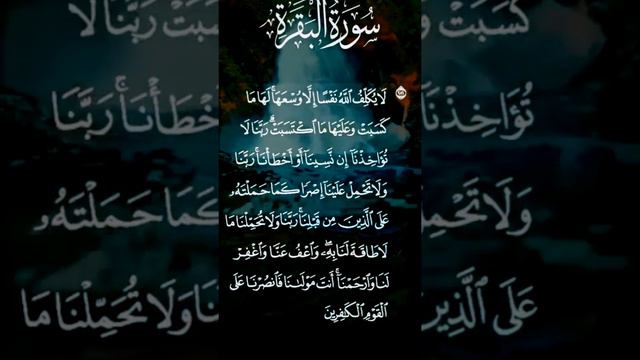 سُورَةُ الْبَقَرَةِ
٢٨٦ لَا يُكَلِّفُ ٱللَّهُ نَفْسًا إِلَّا وُسْعَهَا ۚ لَهَا مَا
كَسَبَتْ وَعَلَيْهَا مَا ٱكْتَسَبَتْ ۗ رَبَّنَا لَا
تُؤَاخِذْنَآ إِن نَّسِينَآ أَوْ أَخْطَأْنَا ۚ رَبَّنَا
وَلَا تَحْمِلْ عَلَيْنَآ إِصْرًا كَمَا حَمَلْتَهُۥ
عَلَى ٱلَّذِينَ مِن قَبْلِنَا ۚ رَبَّنَا وَلَا تُحَمِّلْنَا مَا
لَا طَاقَةَ لَنَا بِهِۦ ۖ وَٱعْفُ عَنَّا وَٱغْفِرْ
لَنَا وَٱرْحَمْنَآ ۚ أَنتَ مَوْلَىٰنَا فَٱنصُرْنَا عَلَى
ٱلْقَوْمِ ٱلْكَٰفِرِينَ